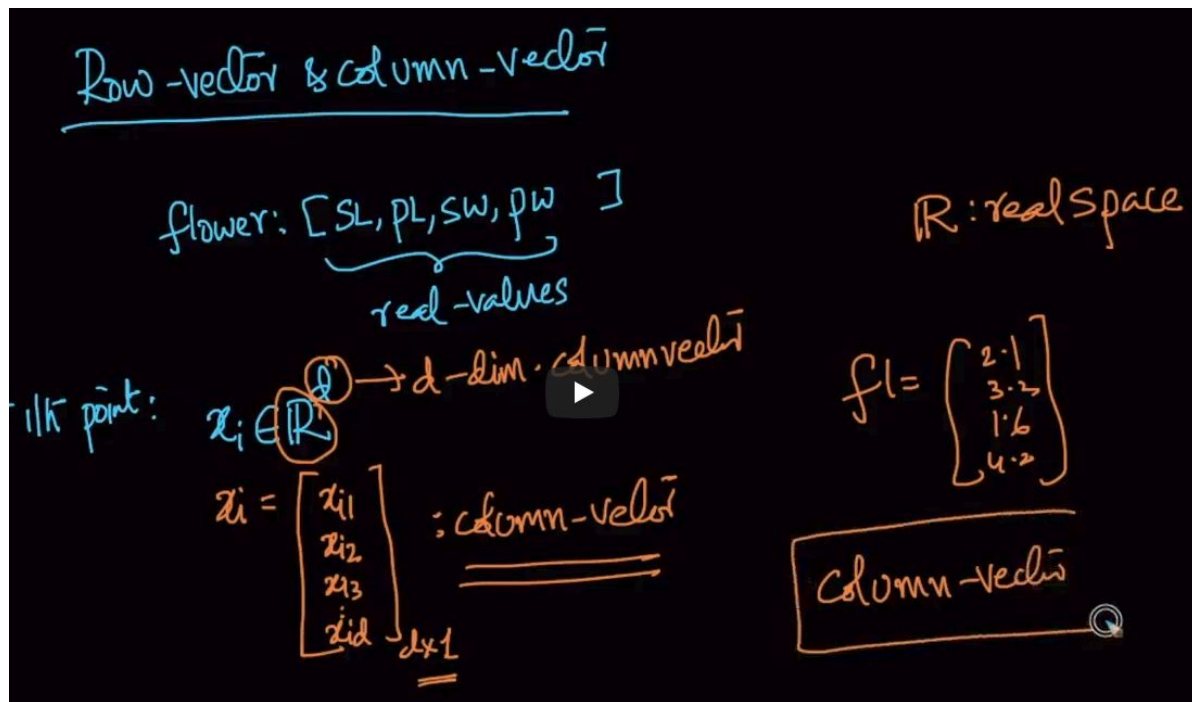 Row-vector & column-vector
flower: [SL, PL, SW, PW ]
real-values
R: real space
ith point: xi ∈ R^d → d-dim. column vector
xi = [xi1
xi2
xi3
:
xid] d×1
: column-vector
f1 = [2.1
3.2
1.6
4.2]
column-vector